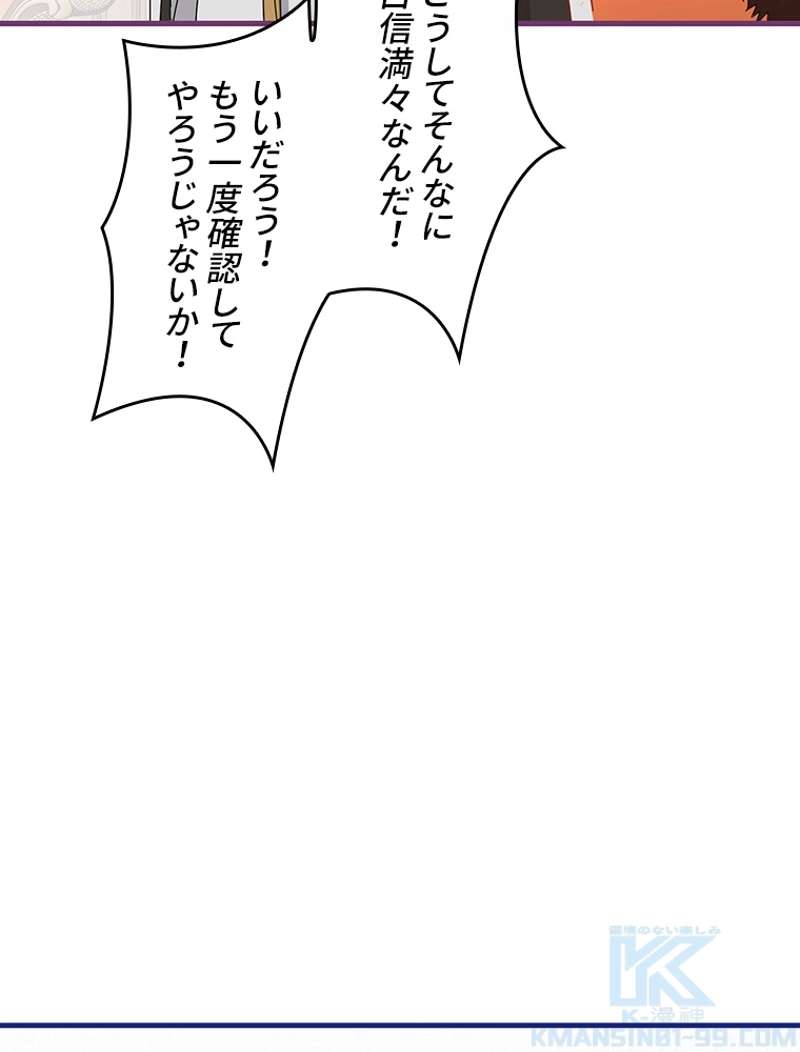 どうしてそんなに
自信満々なんだ！
いいだろう！
もう一度確認して
やろうじゃないか！
K-漫神
KMANSIN01-99.COM